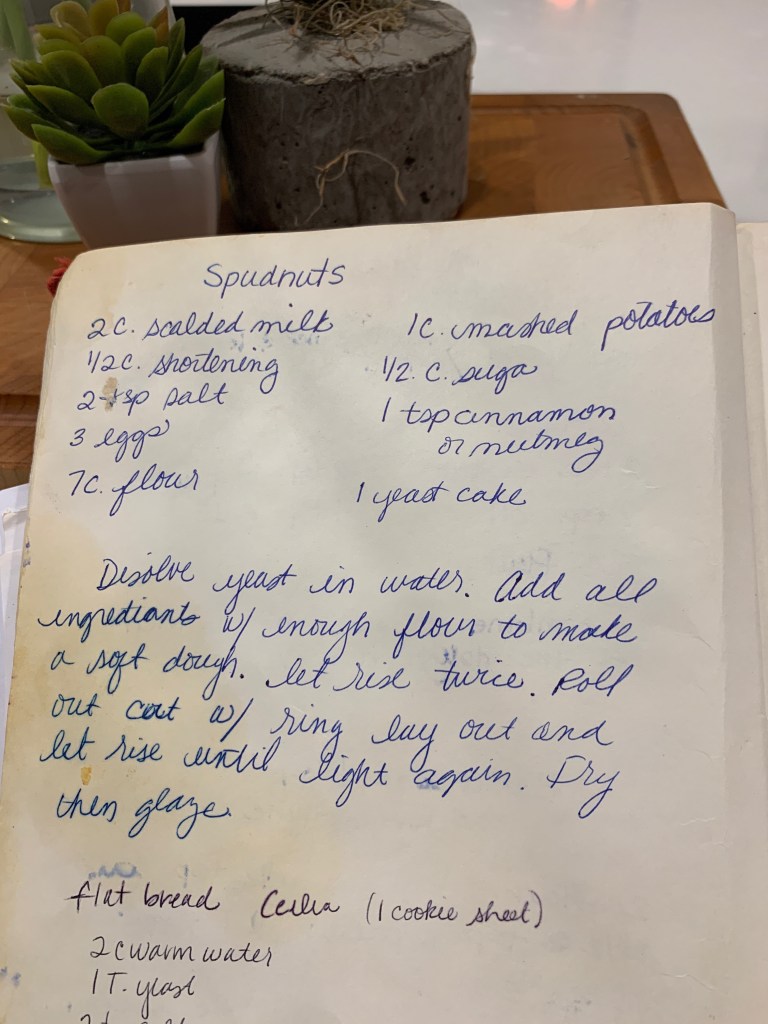 Spudnuts
2c. scalded milk
1/2c. shortening
2 tsp salt
3 eggs
7c. flour
1c. mashed potatoes
1/2. c. suga
1 tsp cinnamon
or nutmeg
1 yeast cake
Disolve yeast in water. Add all
ingrediants w/ enough flour to make
a soft dough. let rise twice. Roll
out cut w/ ring lay out and
let rise until light again. Fry
then glaze.
flat bread Cecilia (1 cookie sheet)
2c warm water
1T. yeast